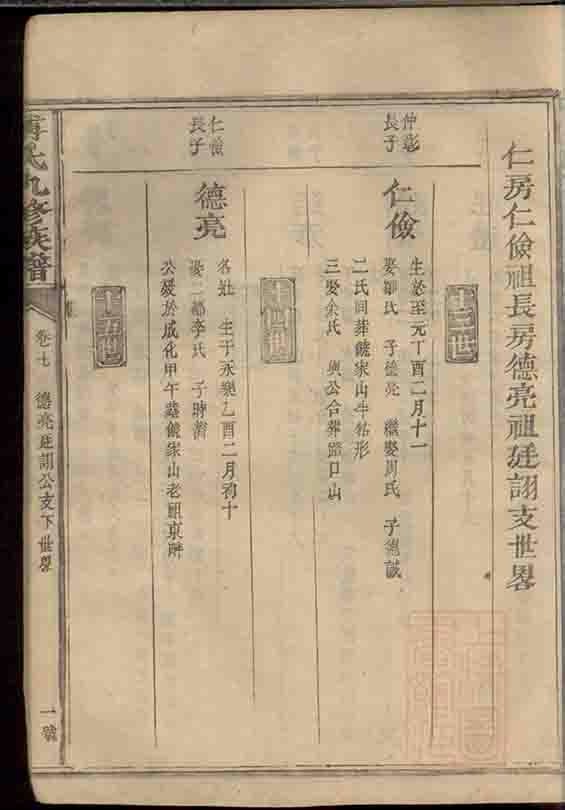 仁房仁儉祖長房德亮祖廷詡支世畧
十三世
仲彰
長子
仁儉
生於至元丁酉二月十一
娶鄒氏 子德亮 繼娶周氏 子德誠
二氏同葬饒家山牛牯形
三娶余氏 與公合葬路口山
十四世
仁儉
長子
德亮
名
生于永樂乙酉二月初十
娶二都李氏 子時清
公歿於成化甲午葬饒家山老祖東畔
十五世
氏九修族譜
卷七
德亮廷詡公支下世畧
一號